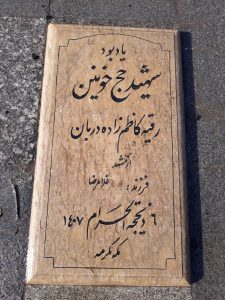 یادبود
شهید حج خونین
رقیه کاظم زاده دربان
فرزند: غلامرضا
۶ ذیحجه الحرام ۱۴۰۷
مکه مکرمه